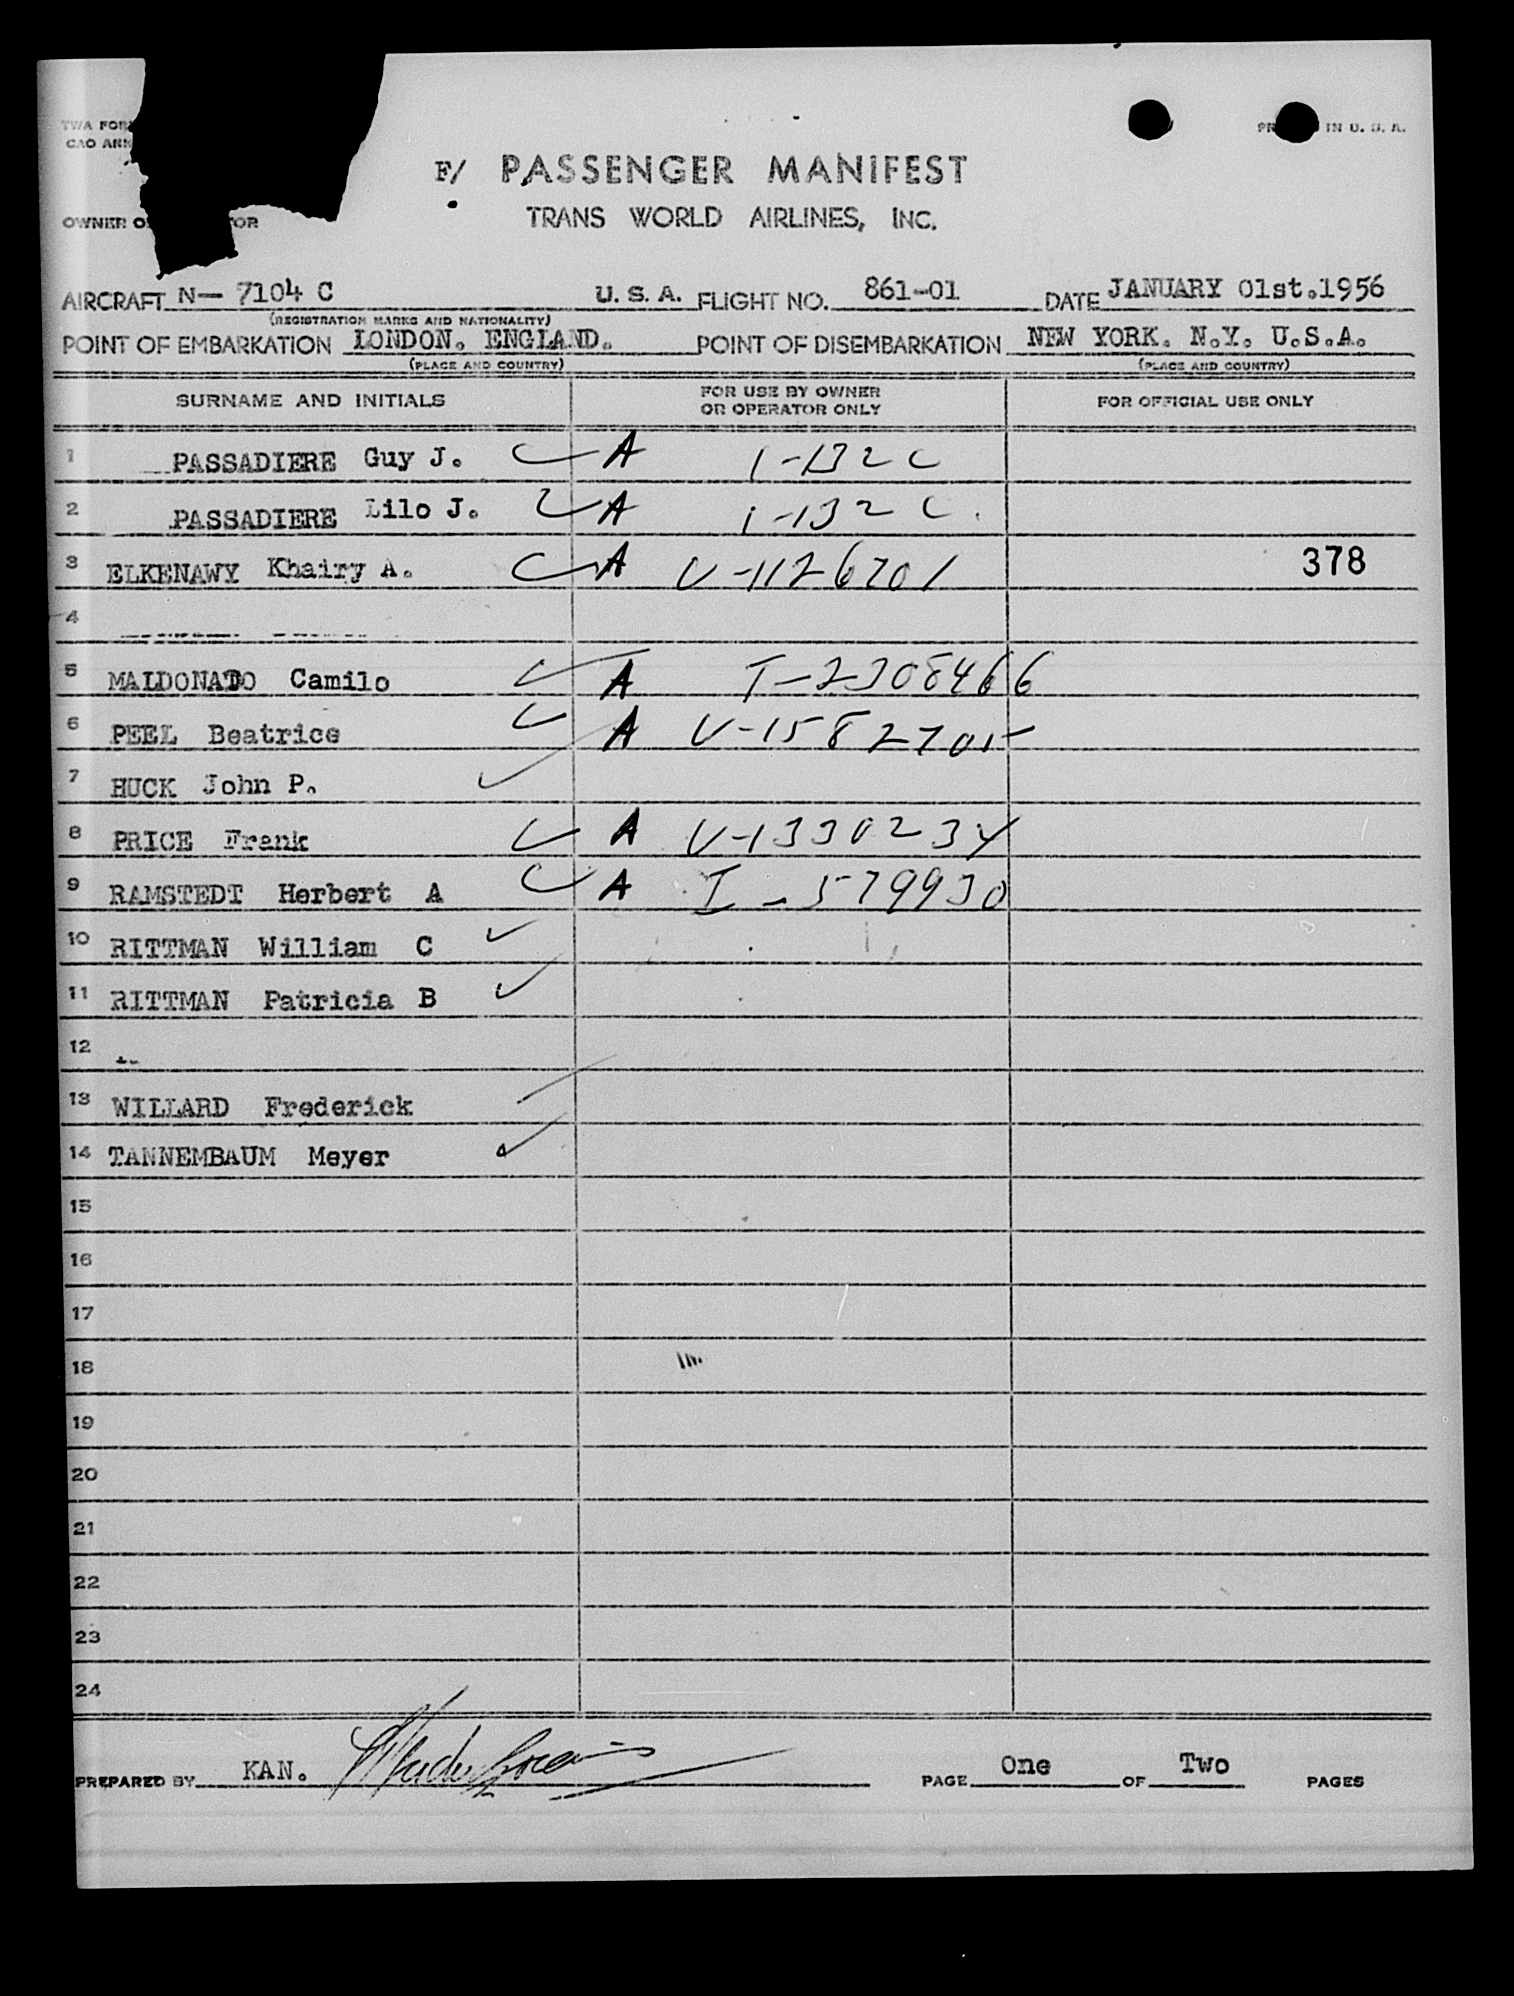 TWA FOR
CAO ANN
IN U. S. A.
F/ PASSENGER MANIFEST
OWNER O OR
TRANS WORLD AIRLINES, INC.
AIRCRAFT N— 7104 C U. S. A. FLIGHT NO. 861-01 DATE JANUARY 01st.1956
(REGISTRATION MARKS AND NATIONALITY)
POINT OF EMBARKATION LONDON. ENGLAND. POINT OF DISEMBARKATION NEW YORK. N.Y. U.S.A.
(PLACE AND COUNTRY) (PLACE AND COUNTRY)
SURNAME AND INITIALS FOR USE BY OWNER OR OPERATOR ONLY FOR OFFICIAL USE ONLY
1 PASSADIERE Guy J. A 1-132 C
2 PASSADIERE Lilo J. A 1-132 C
3 ELKENAWY Khairy A. A V-1126701 378
4
5 MALDONADO Camilo A I-2308466
6 PEEL Beatrice A V-1582705
7 HUCK John P.
8 PRICE Frank A V-1330234
9 RAMSTEDT Herbert A A I-579930
10 RITTMAN William C
11 RITTMAN Patricia B
12
13 WILLARD Frederick
14 TANNEMBAUM Meyer
15
16
17
18
19
20
21
22
23
24
PREPARED BY KAN. PAGE One OF Two PAGES